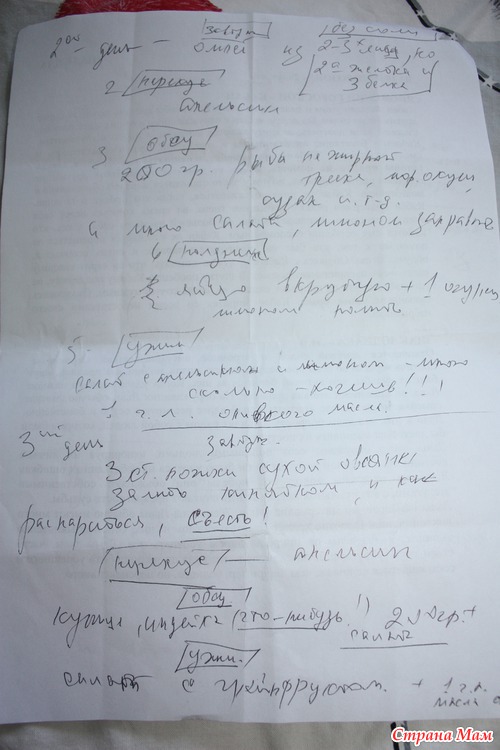 завтрак
без соли
2ой день — омлет из 2-3х яиц, но
2а желтка и
3 белка
2 перекус
апельсин
3 обед
200 гр. рыба нежирная
треска, мор. окунь,
судак и т.д.
и много салата, лимоном заправить
полдник
яйцо вкрутую + 1 огурец
лимоном полить
5. ужин
салат с апельсином и лимоном - много
сколько - хочешь!!!
1 ч.л. оливкового масла.
3ий день
завтрак.
3 ст. ложки сухой овсянки
залить кипятком, и как
распариться, съесть!
перекус — апельсин
обед
курица, индейка (что-нибудь!) 200 гр. +
салат
ужин.
салат с грейпфрутом + 1 ч.л.
масла о
Страна Мам